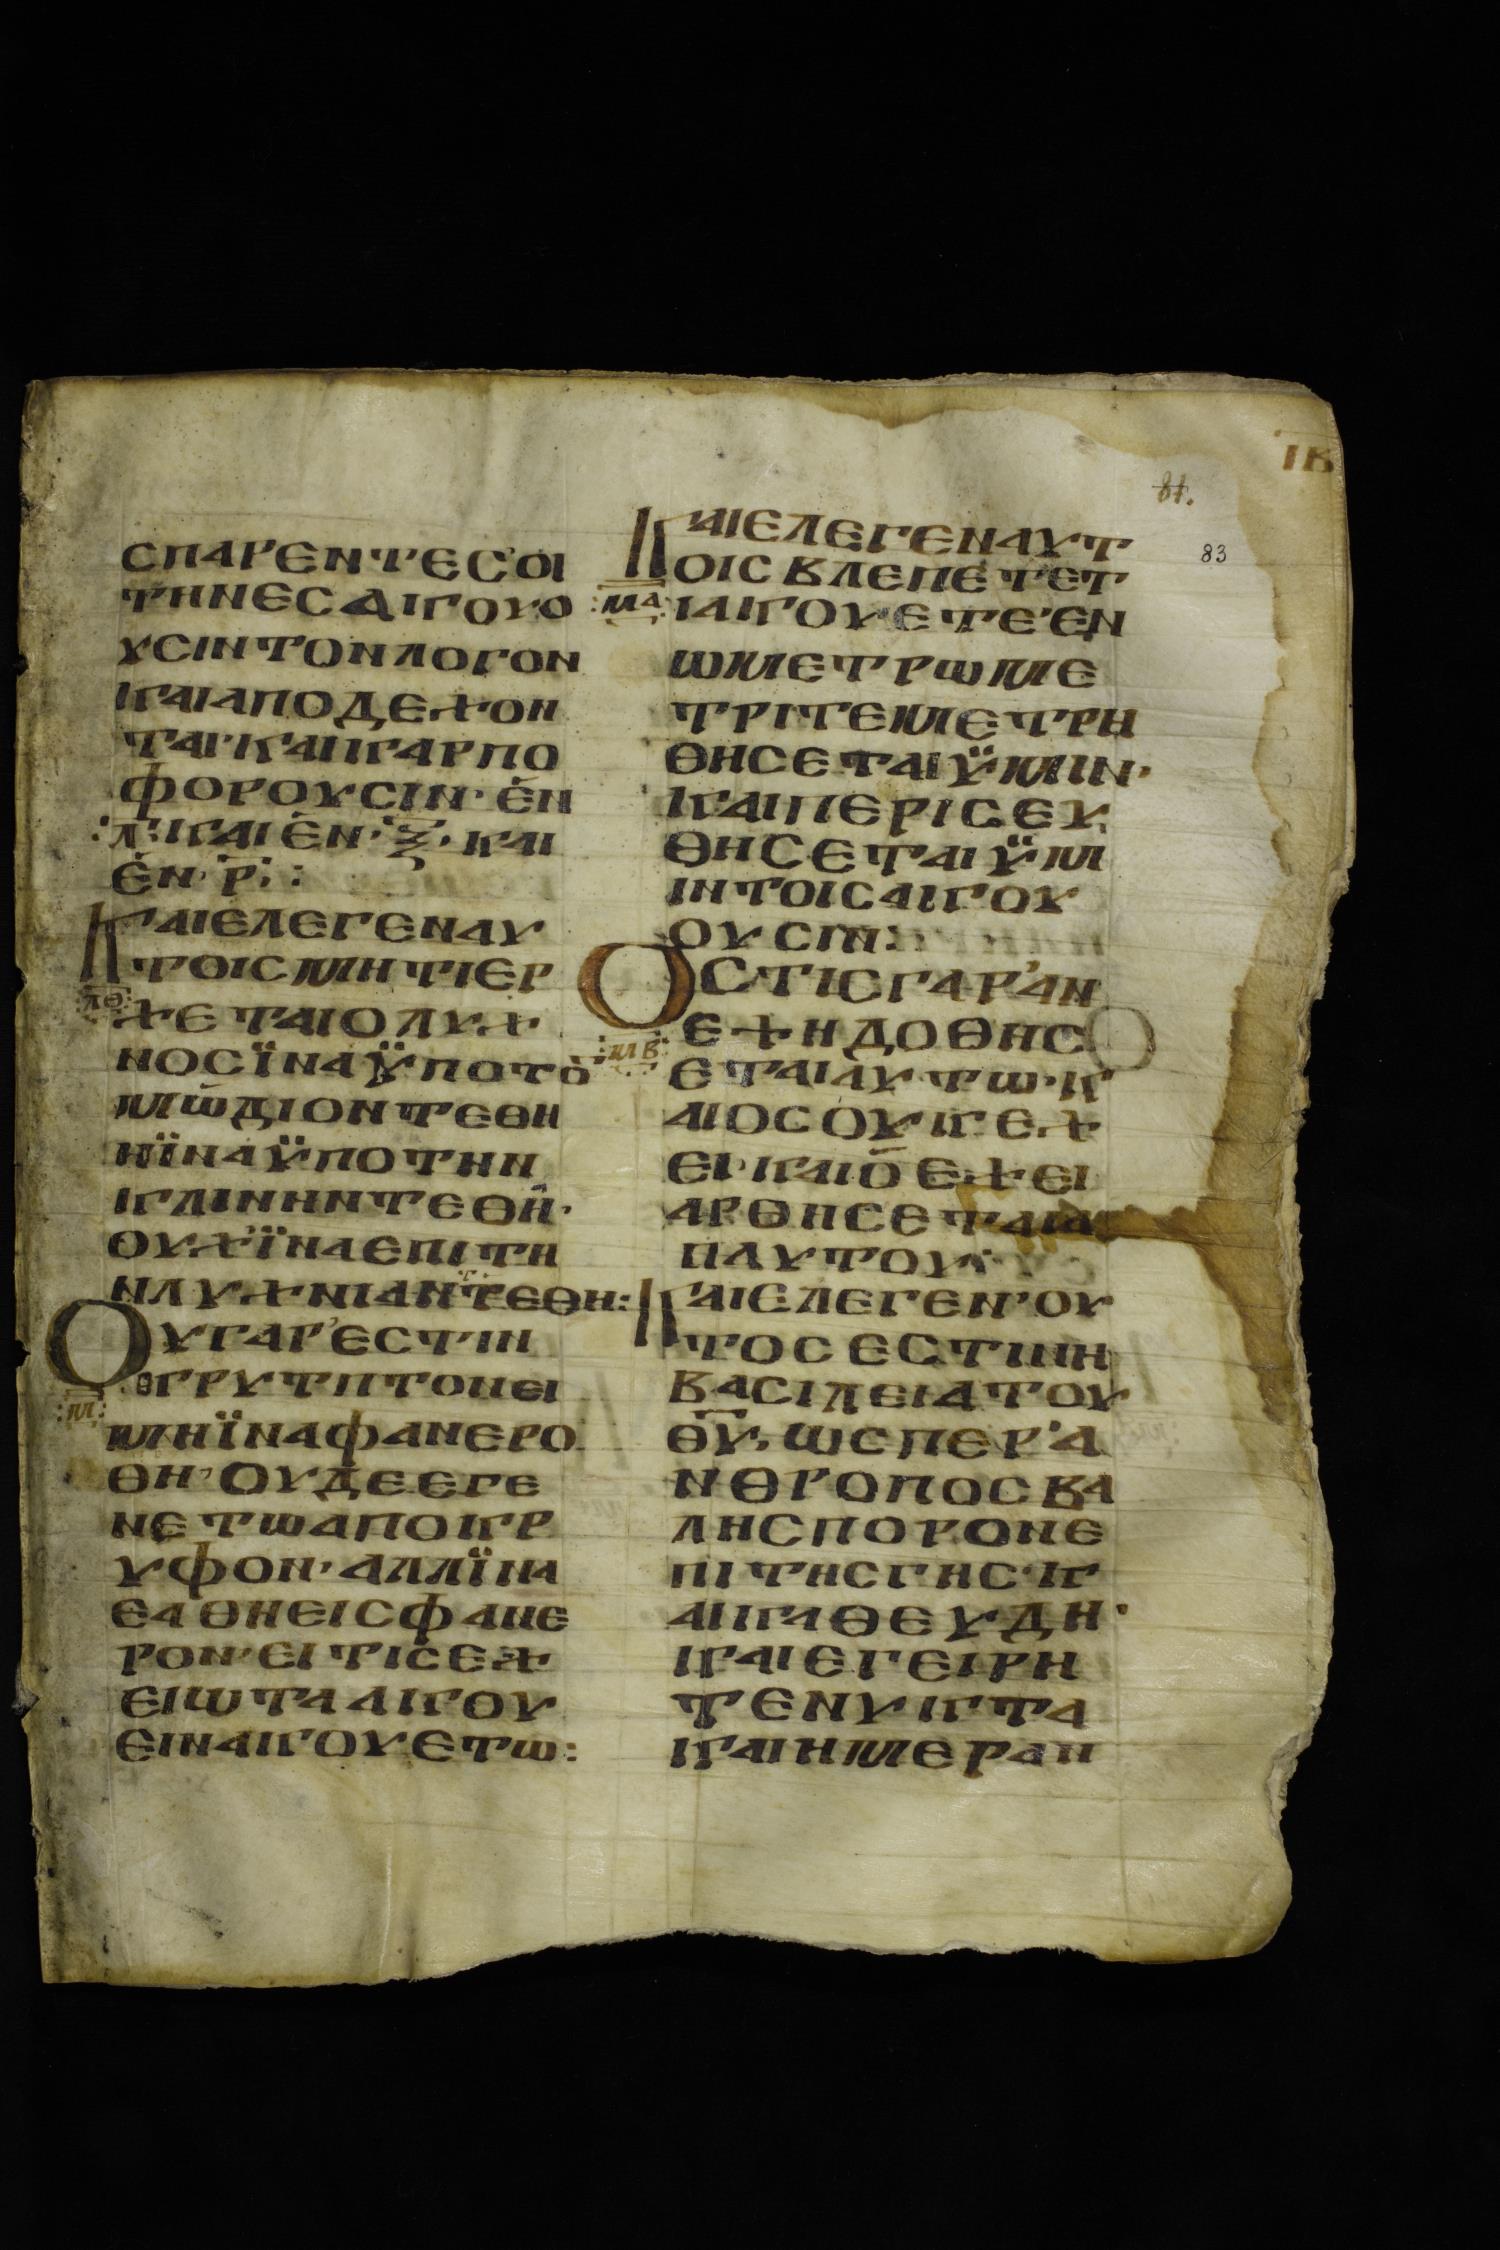 ΙΒ
81.
83
ΣΠΑΡΕΝΤΕΣ·ΟΙ
ΤΗΝΕΣΑΙΚΟΥΟ
ΥΣΙΝΤΟΝΛΟΓΟΝ
ΚΑΙΑΠΟΔΕΧΟΝ
ΤΑΙ·ΚΑΙΚΑΡΠΟ
ΦΟΡΟΥΣΙΝ·ΕΝ
·Λ̅·ΚΑΙΕΝ·Ξ̅·ΚΑΙ
ΕΝ·Ρ̅··:
ΚΑΙΕΛΕΓΕΝΑΥ
ΤΟΙΣΜΗΤΙΕΡ
Λ̅Θ̅
ΧΕΤΑΙΟΛΥΧ
ΝΟΣΪΝΑΫΠΟΤΟ
ΜΩΔΙΟΝΤΕΘΗ
ΗΪΝΑΫΠΟΤΗΝ
ΚΛΙΝΗΝΤΕΘΗ·
ΟΥΧΪΝΑΕΠΙΤΗ
ΝΛΥΧΝΙΑΝΤΕΘΗ:
ΟΥΓΑΡ'ΕΣΤΙΝ
Μ̅
ΚΡΥΤΠΤΟΝΕΙ
ΜΗΪΝΑΦΑΝΕΡΟ
ΘΗ·ΟΥΔΕΕΓΕ
ΝΕΤΩΑΠΟΚΡ
ΥΦΟΝ·ΑΛΛΪΝΑ
ΕΛΘΗΕΙΣΦΑΝΕ
ΡΟΝ·ΕΙΤΙΣΕΧ
ΕΙΩΤΑΑΚΟΥ
ΕΙΝΑΚΟΥΕΤΩ:
ΚΑΙΕΛΕΓΕΝΑΥΤ
ΟΙΣΒΛΕΠΕΤΕΤ
Μ̅Α̅
ΙΑΚΟΥΕΤΕ'ΕΝ
ΩΜΕΤΡΩΜΕ
ΤΡΙΤΕΜΕΤΡΗ
ΘΗΣΕΤΑΙΫΜΙΝ·
ΚΑΙΠΕΡΙΣΕΥ
ΘΗΣΕΤΑΙΫΜ
ΙΝΤΟΙΣΑΚΟΥ
ΟΥΣΙΝ:
ΟΣΤΙΣΓΑΡ'ΑΝ
Μ̅Β̅
ΕΧΗΔΟΘΗΣ
ΕΤΑΙΑΥΤΩ·Κ
ΑΙΟΣΟΥΚΕΧ
ΕΙ·ΚΑΙΟΕΧΕΙ
ΑΡΘΗΣΕΤΑΙΑ
ΠΑΥΤΟΥ:
ΚΑΙΕΛΕΓΕΝ'ΟΥ
ΤΟΣΕΣΤΙΝΗ
ΒΑΣΙΛΕΙΑΤΟΥ
Θ̅Υ̅·ΩΣΠΕΡ'Α
ΝΘΡΟΠΟΣΒΑ
ΛΗΣΠΟΡΟΝΕ
ΠΙΤΗΣΓΗΣ·Κ
ΑΙΚΑΘΕΥΔΗ·
ΚΑΙΕΓΕΙΡΗ
ΤΕΝΥΚΤΑ
ΚΑΙΗΜΕΡΑΝ